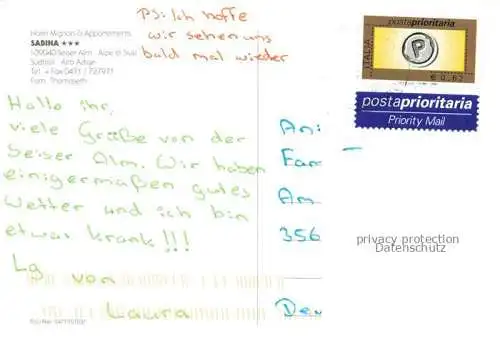 PS: Ich hoffe
wir sehen uns
bald mal wieder
Hotel Mignon & Appartements
SABINA ★★★
I-39040 Seiser Alm · Alpe di Siusi
Südtirol · Alto Adige
Tel. + Fax 0471 / 727971
Fam. Thomaseth
Hallo ihr,
viele Grüße von der
Seiser Alm. Wir haben
einigermaßen gutes
Wetter und ich bin
etwas krank!!!
Lg
von
Laura
postaprioritaria
ITALIA
P
€ 0,62
postaprioritaria
Priority Mail
An
Fam
Am
356
Deu
privacy protection
Datenschutz